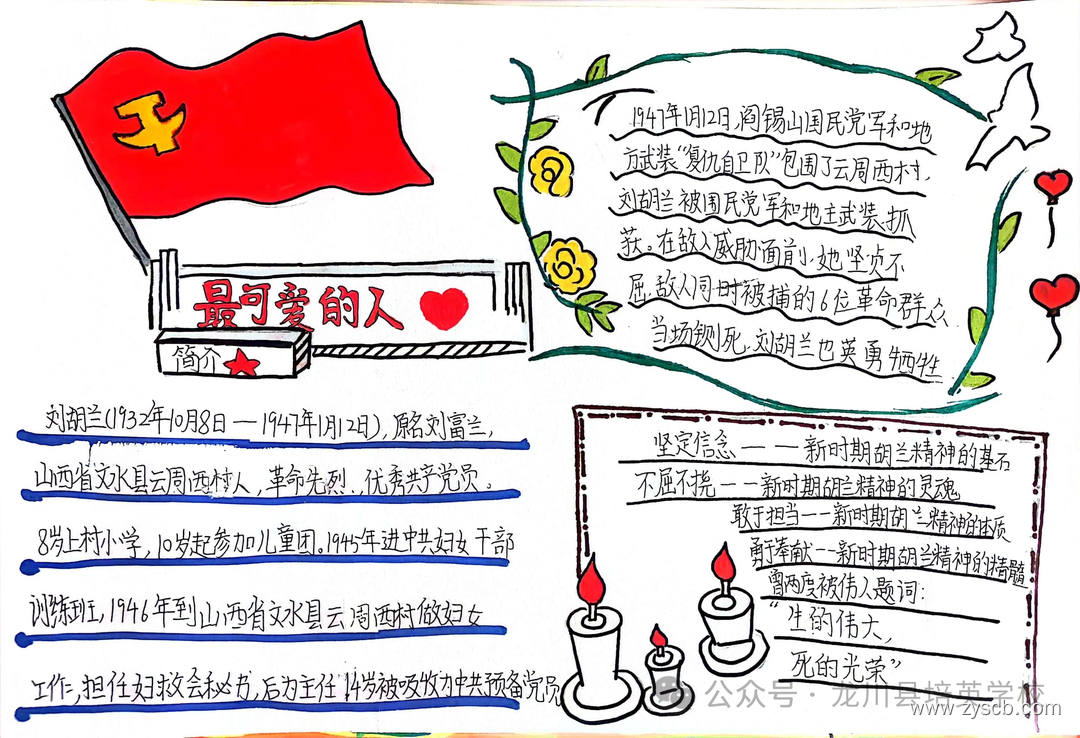 最可爱的人
简介
刘胡兰(1932年10月8日—1947年1月12日),原名刘富兰,
山西省文水县云周西村人,革命先烈、优秀共产党员。
8岁上村小学,10岁起参加儿童团。1945年进中共妇女干部
训练班,1946年到山西省文水县云周西村做妇女
工作,担任妇救会秘书,后为主任14岁被吸收为中共预备党员
1947年1月12日,阎锡山国民党军和地
方武装“复仇自卫队”包围了云周西村,
刘胡兰被国民党军和地主武装抓
获。在敌人威胁面前,她坚贞不
屈,敌人同时被捕的6位革命群众
当场铡死,刘胡兰也英勇牺牲
坚定信念——新时期胡兰精神的基石
不屈不挠——新时期胡兰精神的灵魂
敢于担当——新时期胡兰精神的体质
勇于奉献——新时期胡兰精神的精髓
曾两度被伟人题词:
“生的伟大,
死的光荣”
公众号·龙川县培英学校
www.zyscb.com